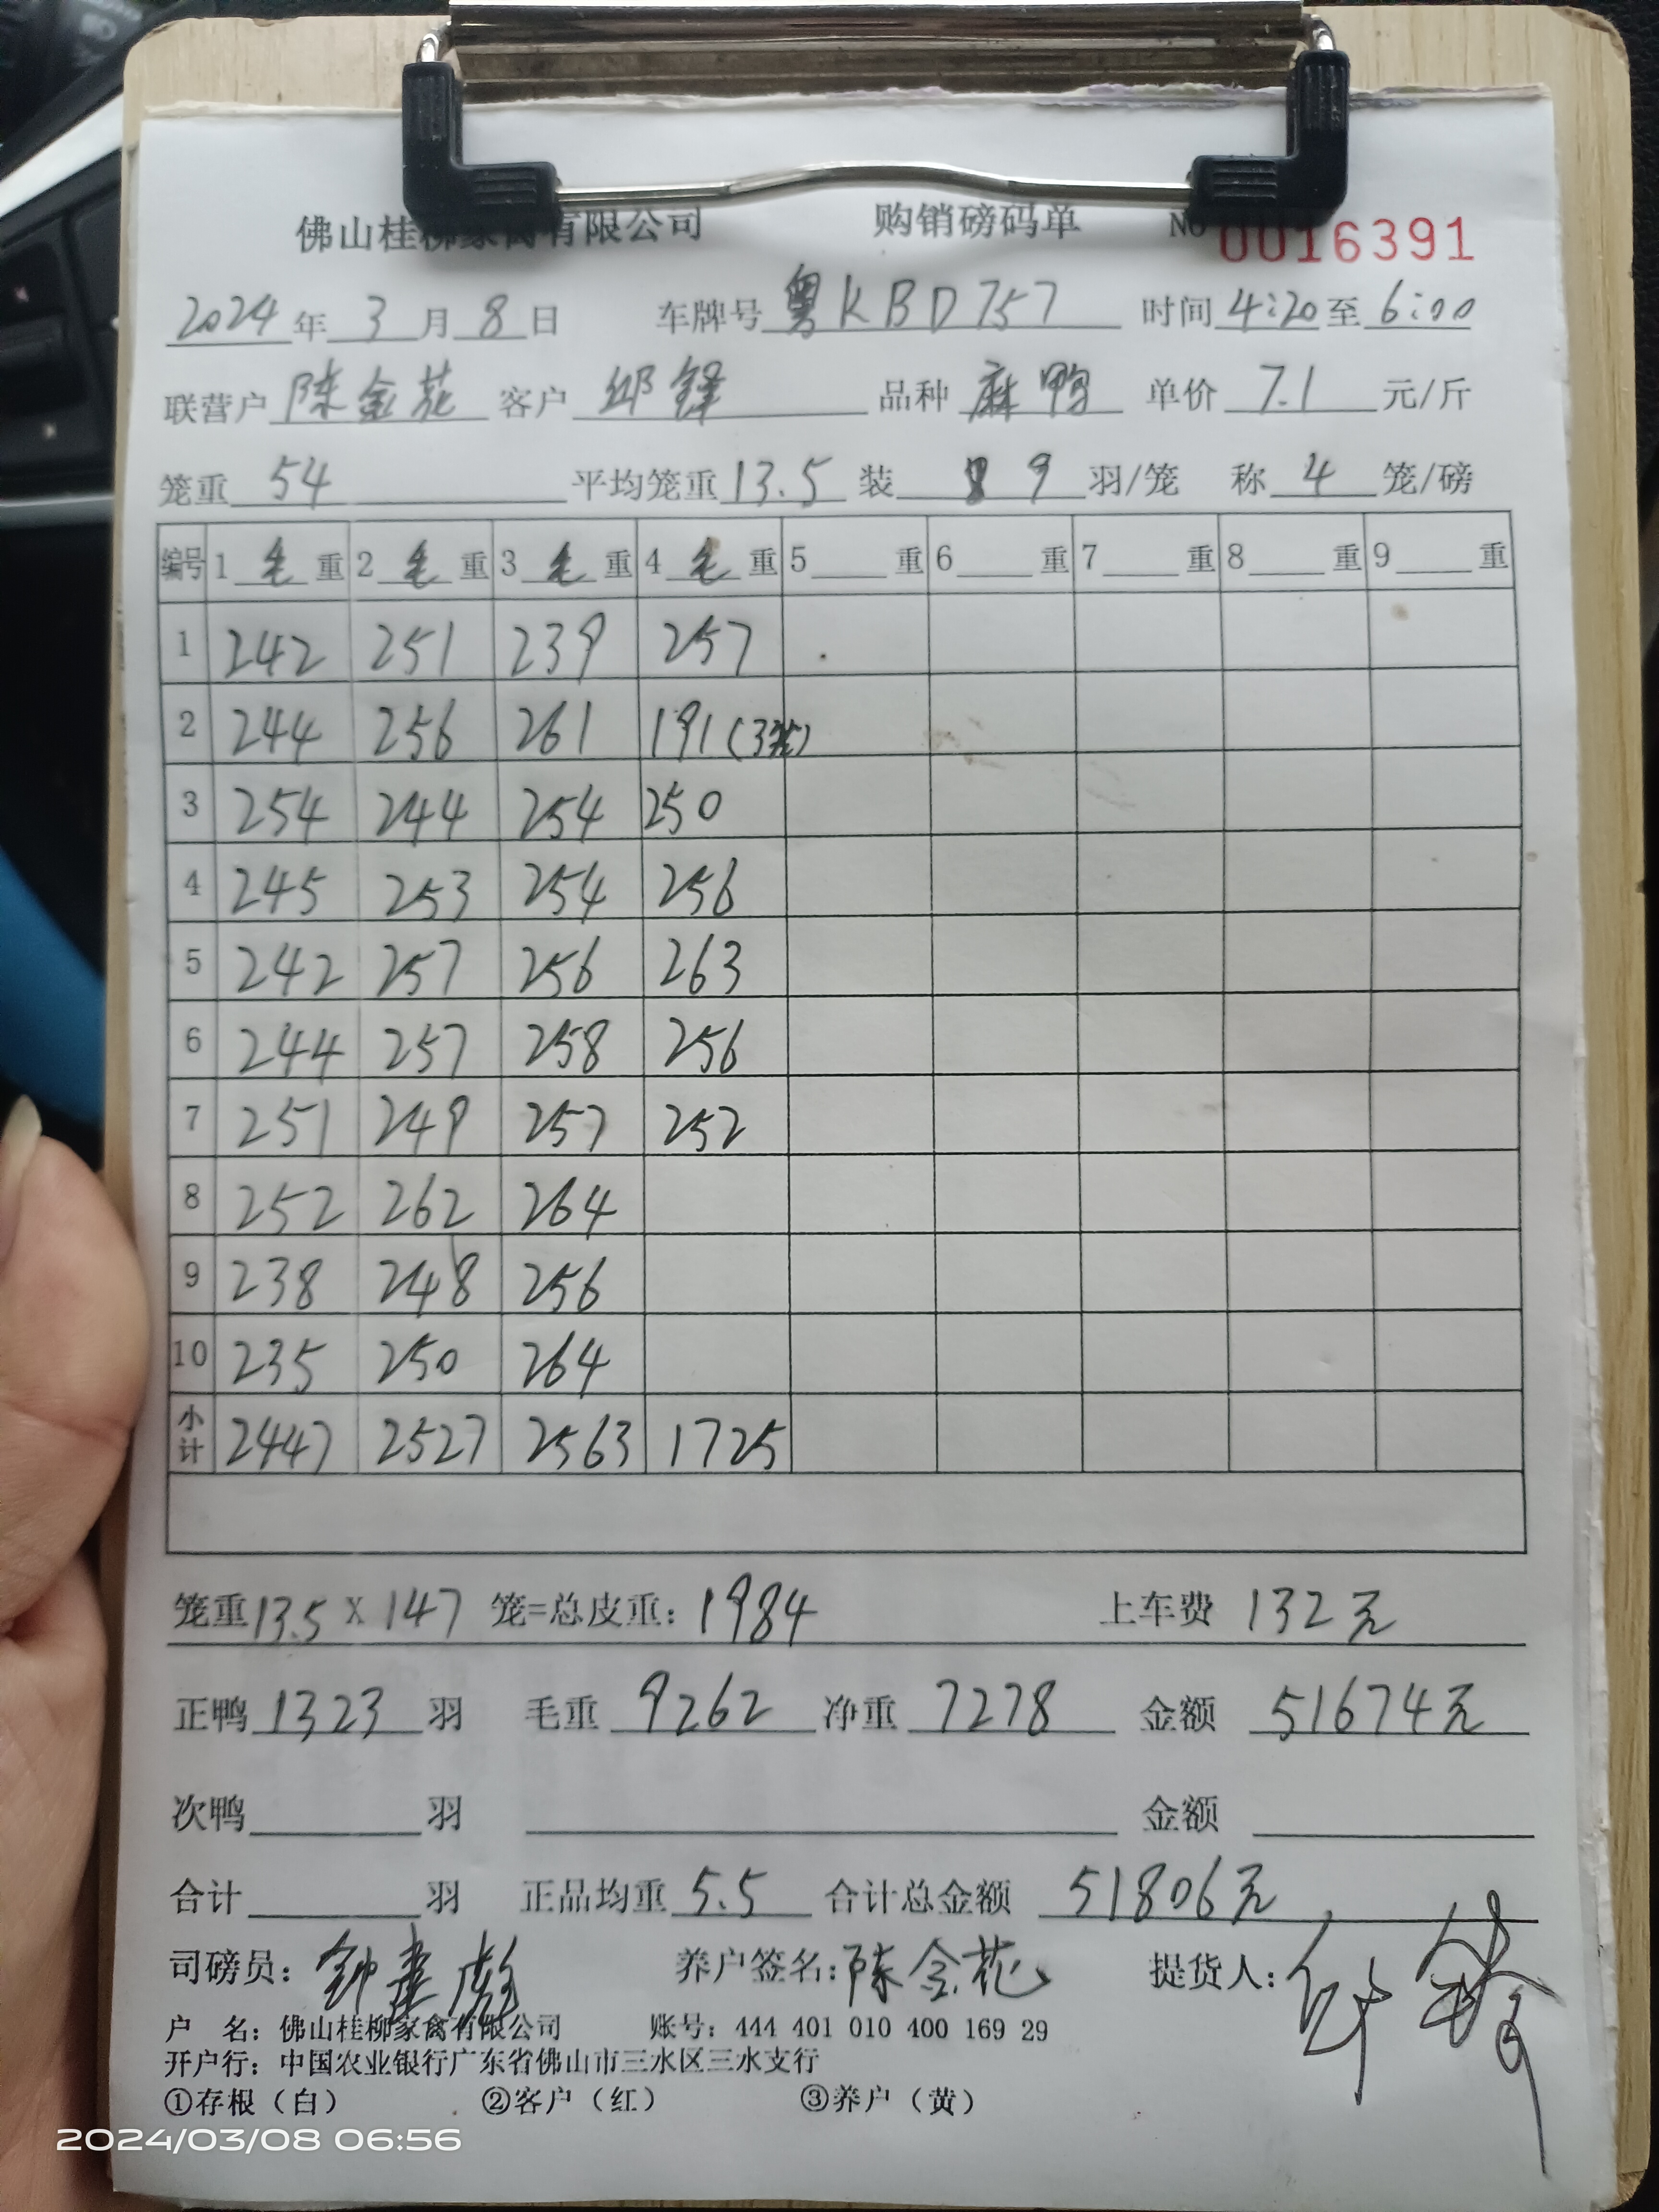 佛山桂柳家禽有限公司 购销磅码单 NO 0016391
2024年 3月 8日 车牌号 粤KBD757 时间 4:20 至 6:00
联营户 陈金花 客户 邱锋 品种 麻鸭 单价 7.1 元/斤
笼重 54 平均笼重 13.5 装 9 羽/笼 称 4 笼/磅
编号 1 毛 重 2 毛 重 3 毛 重 4 毛 重 5 重 6 重 7 重 8 重 9 重
1 242 251 239 257
2 244 256 261 191(3笼)
3 254 244 254 250
4 245 253 254 256
5 242 257 256 263
6 244 257 258 256
7 251 249 257 252
8 252 262 264
9 238 248 256
10 235 250 264
小计 2447 2527 2563 1725
笼重 13.5 X 147 笼=总皮重: 1984 上车费 132元
正鸭 1323 羽 毛重 9262 净重 7278 金额 51674元
次鸭 羽 金额
合计 羽 正品均重 5.5 合计总金额 51806元
司磅员: 钟建彪 养户签名: 陈金花 提货人:
户 名: 佛山桂柳家禽有限公司 账号: 444 401 010 400 169 29
开户行: 中国农业银行广东省佛山市三水区三水支行
①存根(白) ②客户(红) ③养户(黄)
2024/03/08 06:56